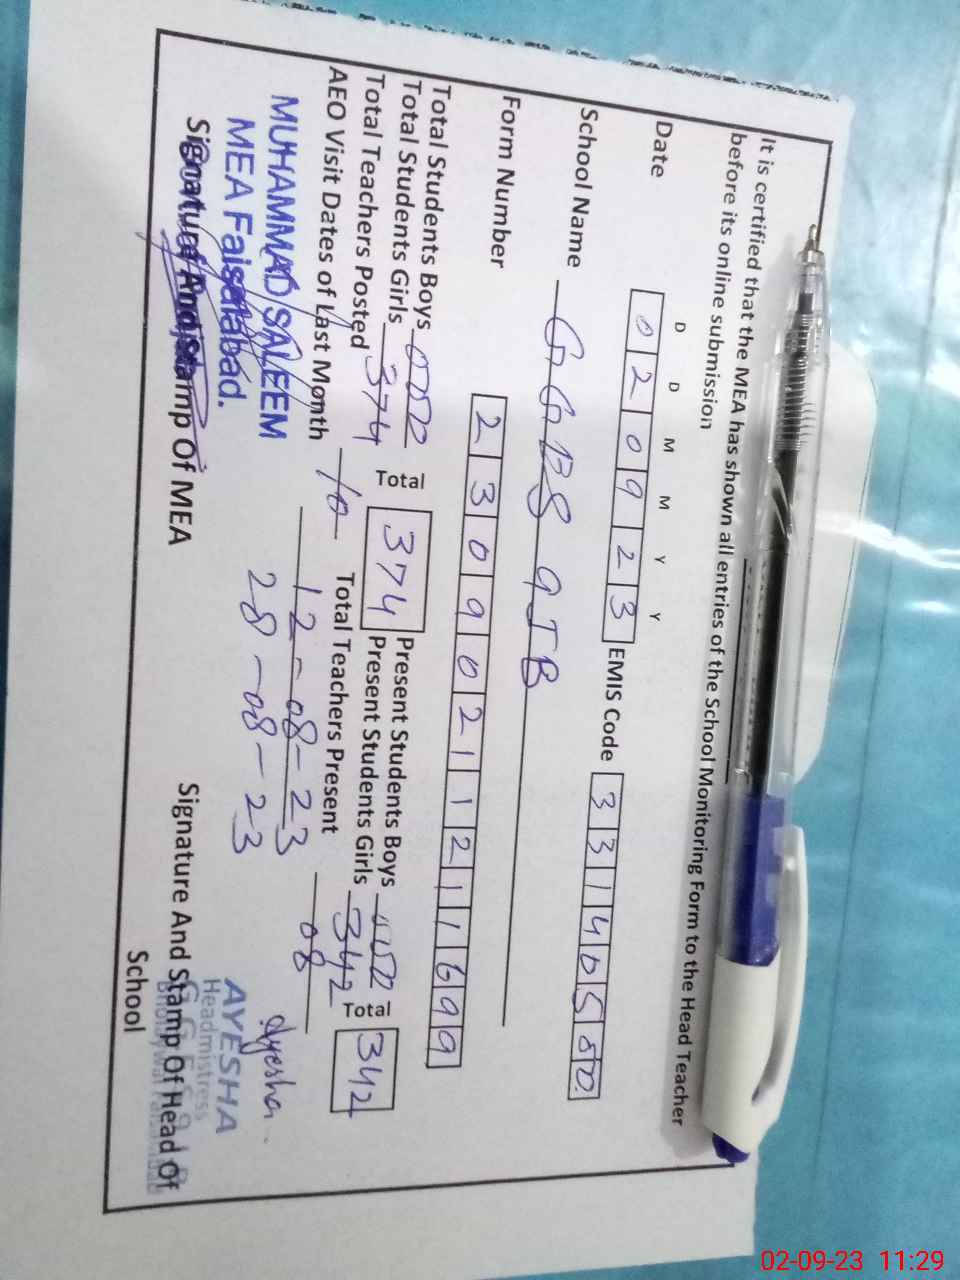 It is certified that the MEA has shown all entries of the School Monitoring Form to the Head Teacher
before its online submission
D D M M Y Y
Date 020923 EMIS Code 33140500
School Name GGPS 9JB
Form Number 23090211211699
Total Students Boys 000 Total 374 Present Students Boys 000 Total 342
Total Students Girls 374 Present Students Girls 342
Total Teachers Posted 10 Total Teachers Present 08
AEO Visit Dates of Last Month 12-08-23
28-08-23
MUHAMMAD SALEEM
MEA Faisalabad.
Signature And Stamp Of MEA
Ayesha
AYESHA
Headmistress
Signature And Stamp Of Head Of
School
02-09-23 11:29